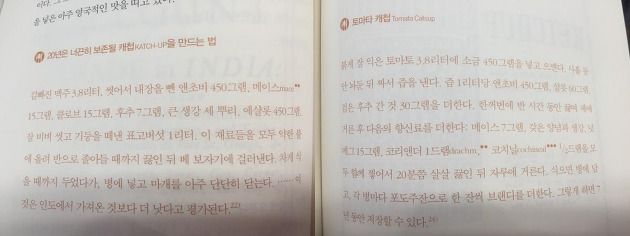 을 넣은 아주 영국적인 맛을 띠고 있
20년은 너끈히 보존될 캐첩KATCH-UP을 만드는 법
김빠진 맥주 3.8리터, 씻어서 내장을 뺀 앤초비 450그램, 메이스mace**
15그램, 클로브 15그램, 후추 7그램, 큰 생강 세 뿌리, 에샬롯 450그램,
잘 비벼 씻고 기둥을 떼낸 표고버섯 1리터. 이 재료들을 모두 약한 불
에 올려 반으로 졸아들 때까지 끓인 뒤 베 보자기에 걸러낸다. 차게 식
을 때까지 두었다가, 병에 넣고 마개를 아주 단단히 닫는다. …… 이
것은 인도에서 가져온 것보다 더 낫다고 평가된다.22)
토마타 캐첩 Tomata Catsup
붉게 잘 익은 토마토 3.8리터에 소금 450그램을 넣고 으깬다. 사흘 동
안 놔둔 뒤 짜서 즙을 낸다. 즙 1리터당 앤초비 450그램, 샬롯 60그램,
검은 후추 간 것 30그램을 더한다. 한꺼번에 반 시간 동안 끓여 체에
거른 후 다음의 향신료를 더한다: 메이스 7그램, 갖은 양념과 생강, 넛
메그 15그램, 코리앤더 1드램drachm,** 코치닐cochineal*** 1/2드램을 모
두 함께 찧어서 20분쯤 살살 끓인 뒤 자루에 거른다. 식으면 병에 담
고, 각 병마다 포도주잔으로 한 잔씩 브랜디를 더한다. 그렇게 하면 7
년 동안 저장할 수 있다.24)